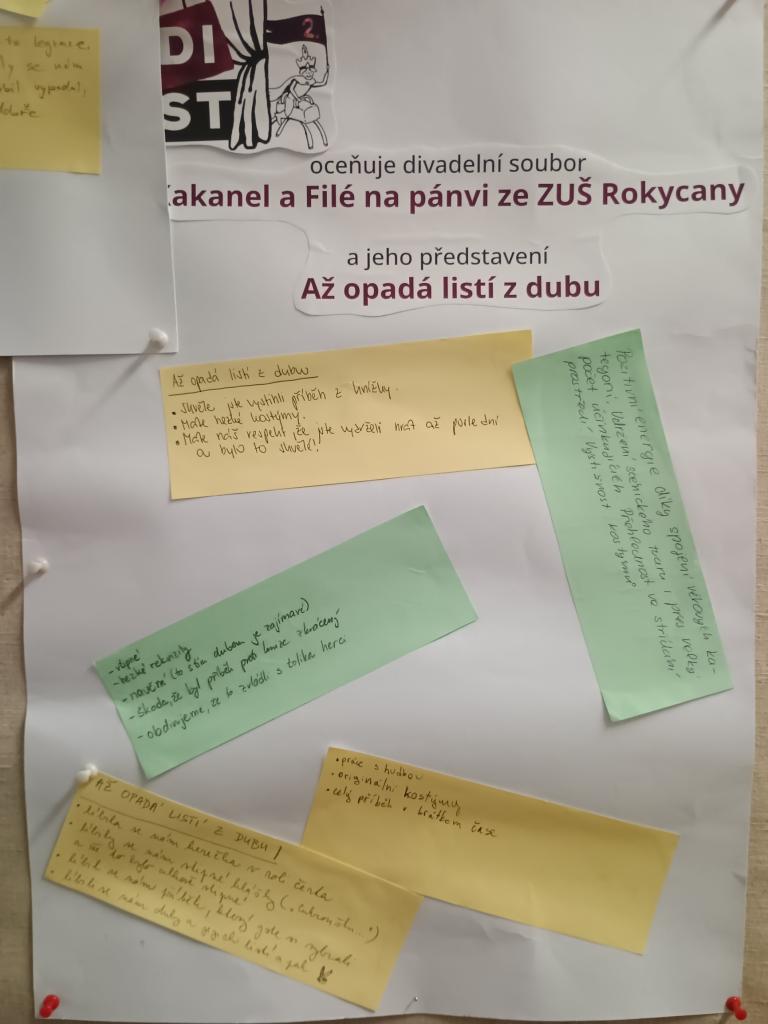 to legrace,
ly se nám
obil vypadal,
dobře
DI
ST
2.
oceňuje divadelní soubor
Kakanel a Filé na pánvi ze ZUŠ Rokycany
a jeho představení
Až opadá listí z dubu
Až opadá listí z dubu
• Skvěle jste vystihli příběh z knížky.
• Máte hezké kostýmy.
• Máte náš respekt, že jste vydrželi hrát až poslední
a bylo to skvělé!
Pozitivní energie díky spojení věkových ka-
tegorií. Udržení scénického tvaru i přes velký
počet účinkujících. Přehlednost ve střídání
prostředí. Výstižnost kostýmů
- vtipné
- hezké rekvizity
- navření (to s tím dubem je zajímavé)
- škoda, že byl příběh proti knize zkrácený
- obdivujeme, že to zvládli s tolika herci
• práce s hudbou
• originální kostýmy
• celý příběh v krátkém čase
AŽ OPADÁ LISTÍ Z DUBU!
• líbila se nám herečka v roli čerta
• líbily se nám vtipné hlášky
a že to bylo celkově vtipné
• líbil se nám příběh, který jste si vybrali
• líbily se nám duby a jejich listí